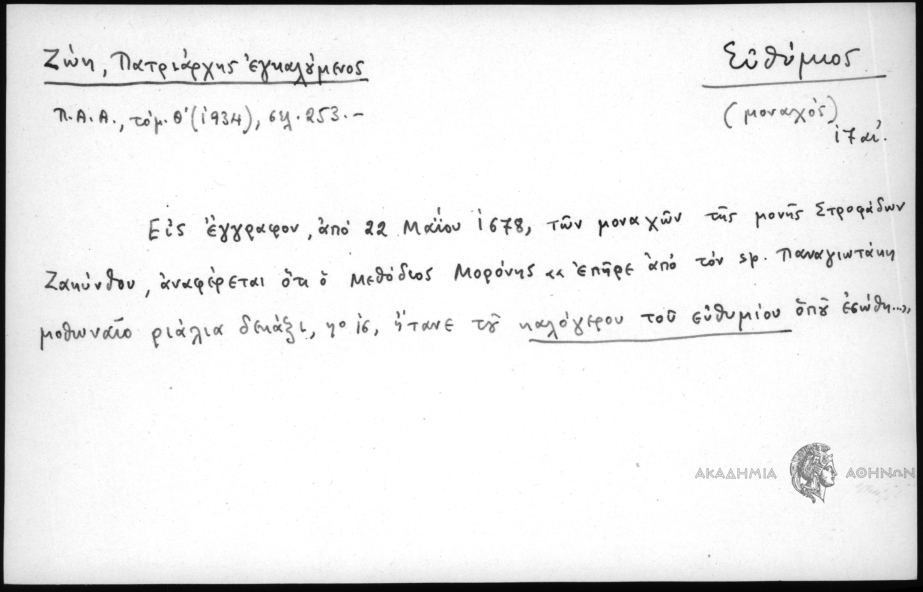 Ζώη, Πατριάρχης ἐγκαλούμενος
Εὐθύμιος
Π.Α.Α., τόμ. Θ' (1934), σελ. 253.-
(μοναχός)
17 αἰ.
Εἰς ἔγγραφον, ἀπό 22 Μαΐου 1678, τῶν μοναχῶν τῆς μονῆς Στροφάδων
Ζακύνθου, ἀναφέρεται ὅτι ὁ Μεθόδιος Μορόνης «ἐπῆρε ἀπό τόν sp. Παναγιωτάκη
μοθωναῖο ριάλια δεκάξι, ἤτανε τοῦ καλόγερου τοῦ εὐθυμίου ὁποῦ ἐσώθη...»
ΑΚΑΔΗΜΙΑ ΑΘΗΝΩΝ